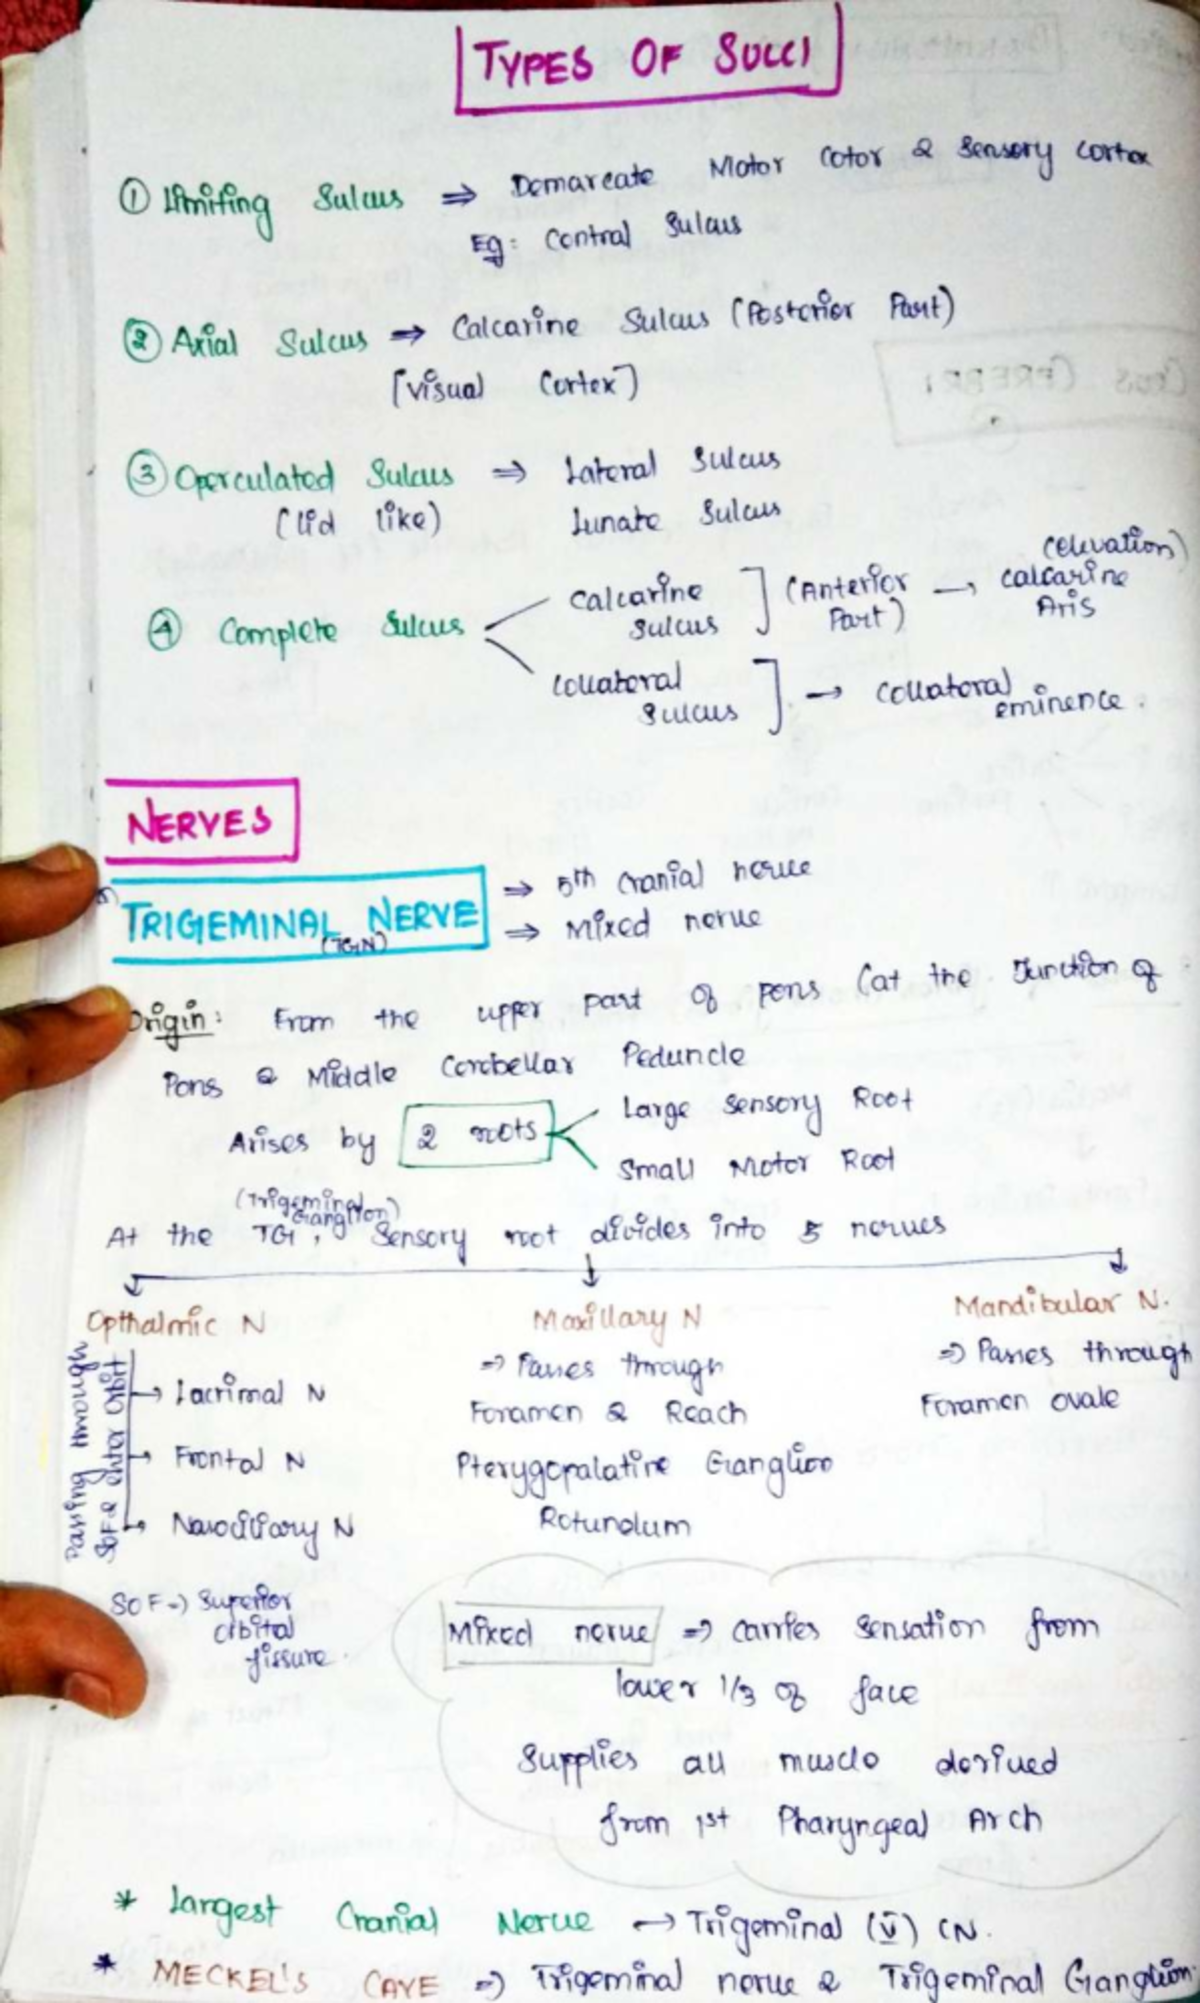 TYPES OF SULCI
① Limiting Sulcus ⇒ Demarcate Motor Cotor & Sensory cortex
Eg: Central Sulcus
② Axial Sulcus ⇒ Calcarine Sulcus (Posterior Part)
[Visual Cortex]
③ Operculated Sulcus ⇒ Lateral Sulcus
(lid like) Lunate Sulcus
(elevation)
④ Complete Sulcus calcarine sulcus ] (Anterior Part) → calcarine Aris
collateral sulcus ] → collateral eminence.
NERVES
TRIGEMINAL NERVE ⇒ 5th cranial nerve
(TGN) ⇒ Mixed nerve
Origin: From the upper part of pons (at the Junction of
Pons & Middle Cerebellar Peduncle
Arises by 2 roots Large Sensory Root
Small Motor Root
(Trigeminal Ganglion)
At the TG, Sensory root divides into 5 nerves
Opthalmic N Maxillary N Mandibular N.
Passing through SOF & enter Orbit
→ Lacrimal N
→ Frontal N
→ Nasociliary N
SOF → Superior
orbital
fissure.
⇒ Passes through
Foramen & Reach
Pterygopalatine Ganglion
Rotundum
⇒ Passes through
Foramen ovale
Mixed nerve ⇒ carries Sensation from
lower 1/3 of face
Supplies all muscle derived
from 1st Pharyngeal Arch
* Largest Cranial Nerve → Trigeminal (V) CN.
* MECKEL'S CAVE ⇒ Trigeminal nerve & Trigeminal Ganglion.